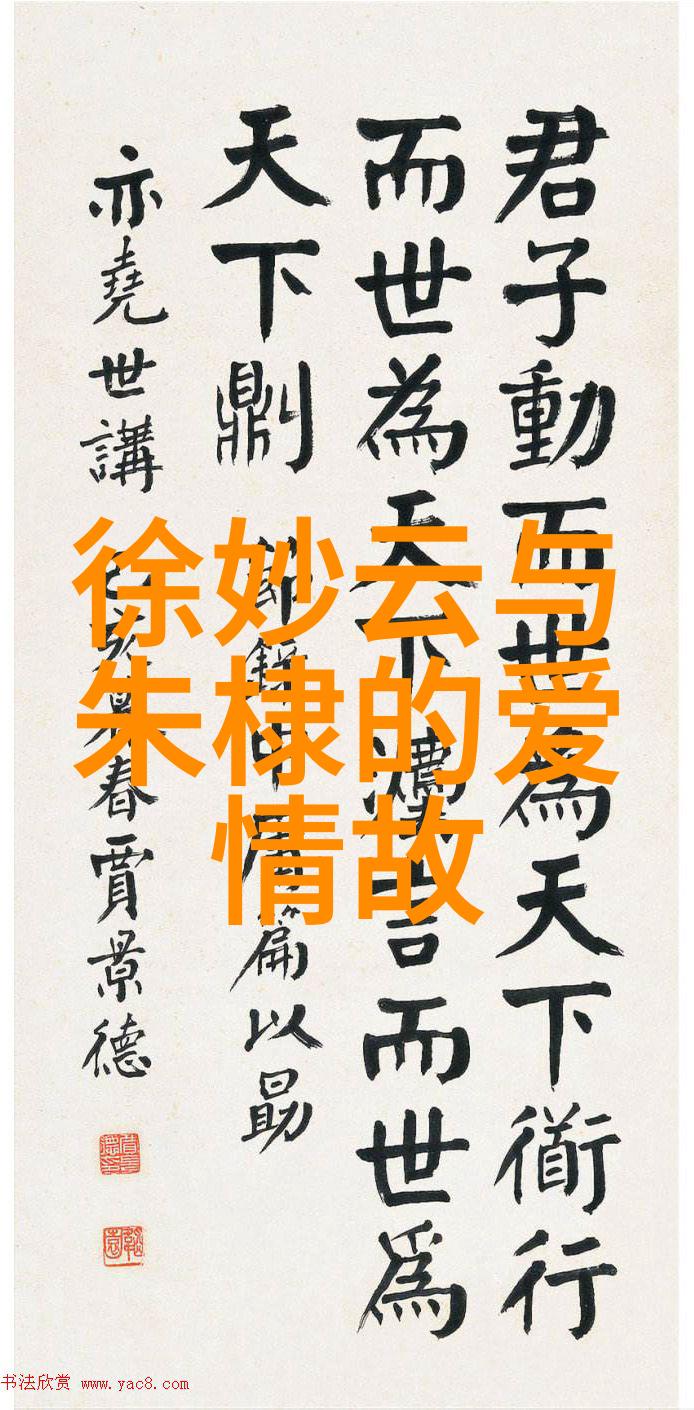 君子動而世為天下衜行
而世為天下灋言而世為
天下𠟭 節錄中庸篇以勗
亦堯世講 春賈景德
徐妙云与
朱棣的爱
情故
书法欣赏 www.yac8.com